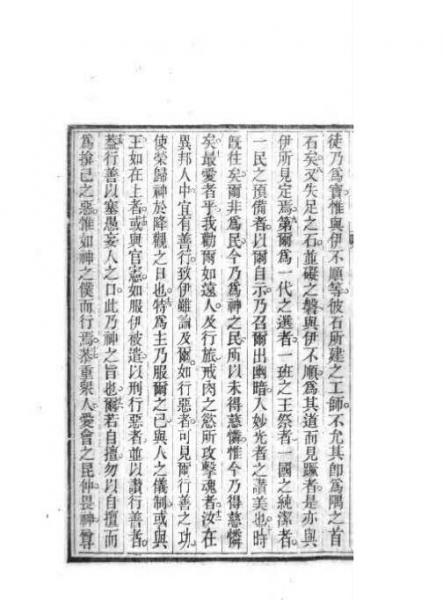 徒乃為寶惟與伊不順等彼石所建之工師不允其即為隅之首
石矣又失足之石並礙之磐與伊不順為其道而見蹶者是亦與
伊所見定焉第爾為一代之選者一班之王祭者一國之純潔者
一民之預備者以爾自示乃召爾出幽暗入妙光者之讚美也時
既往矣爾非為民今乃為神之民所以未得慈憐惟今乃得慈憐
矣最愛者乎我勸爾如遠人及行旅戒肉之慾所攻擊魂者汝在
異邦人中宜有善行致伊雖論及爾如行惡者可見爾行善之功
使榮歸神於降觀之日也特為主乃服爾之已與人之儀制或與
王如在上者或與官憲如服伊被遣以刑行惡者並以讚行善者
蓋行善以塞愚妄人之口此乃神之旨也爾若自擅勿以自擅而
為揜己之惡惟如神之僕而行焉恭重眾人愛會之昆仲畏神尊